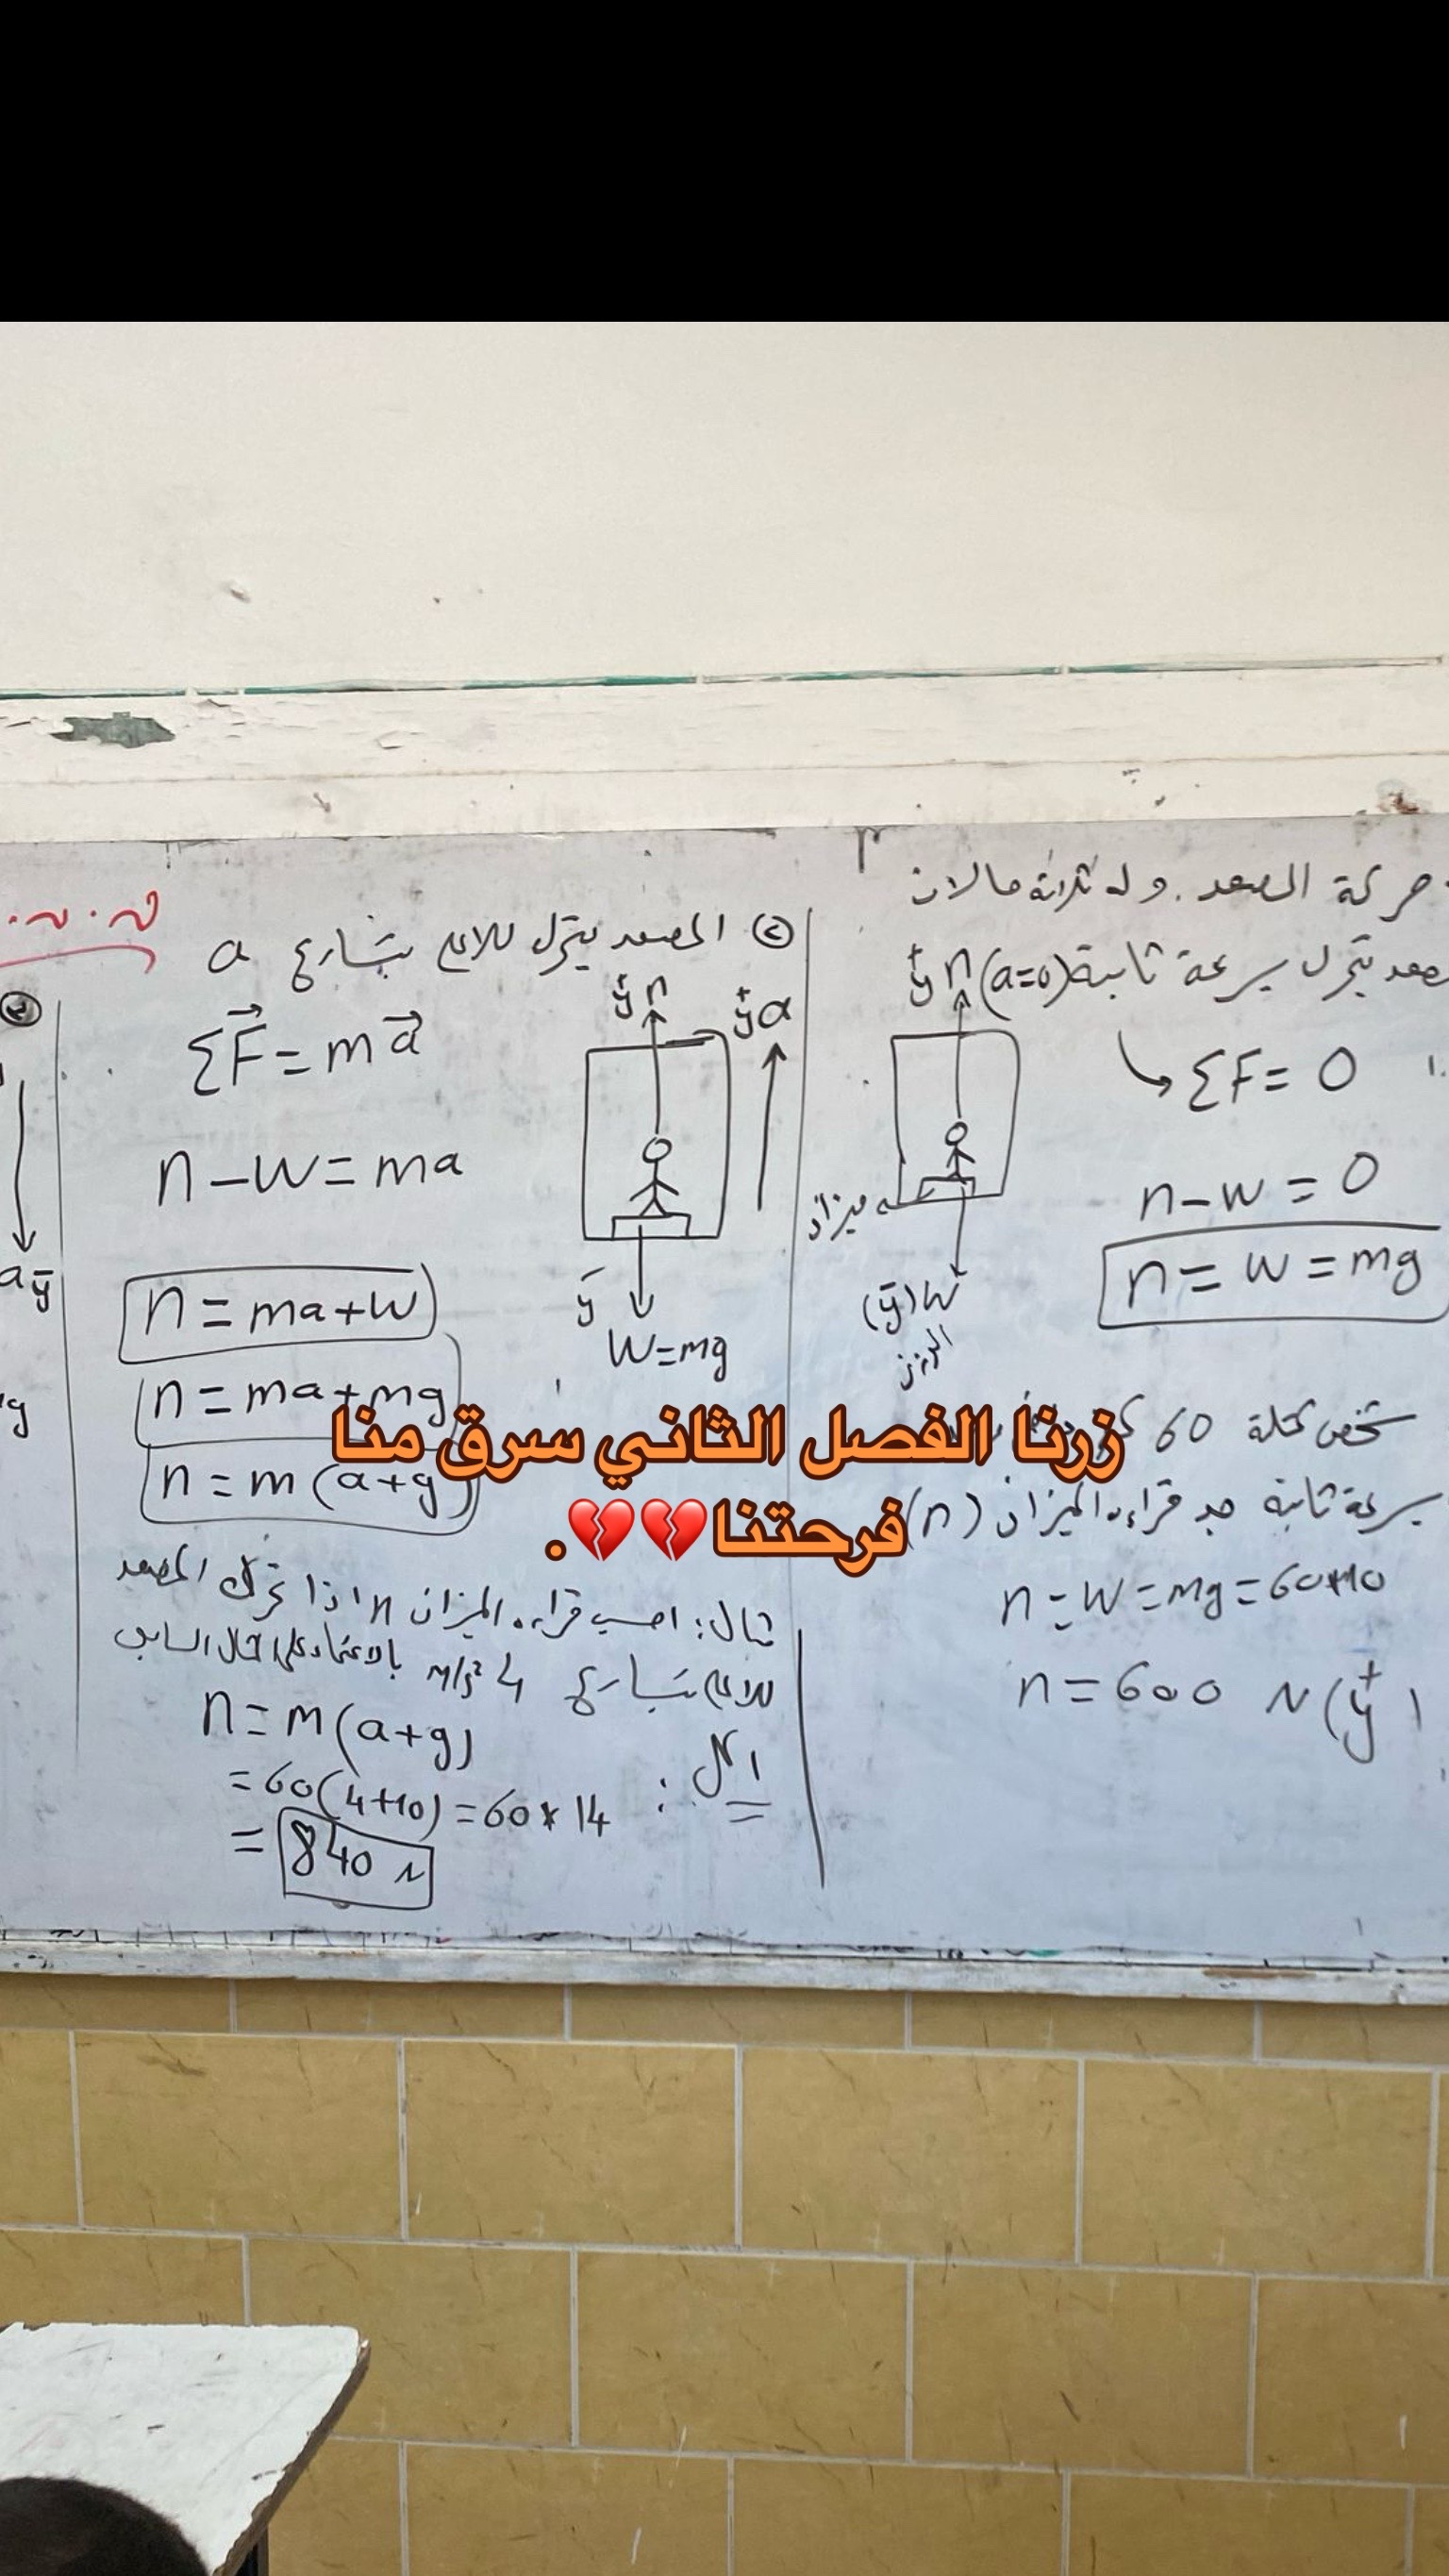 حركة المصعد. وله ثلاثة حالات
يتحرك بسرعة ثابتة (a=0)
n y⁺
→ ΣF = 0
n - w = 0
n = w = mg
ميزان
(y⁻) w
الوزن
شخص كتلة 60
بسرعة ثابتة جد قراءه الميزان (n)
n = w = mg = 60*10
n = 600 N (y⁺)
② المصعد يتحرك للاعلى بتسارع a
ΣF⃗ = ma⃗
y⁺ n
y⁺ a
n - w = ma
n = ma + w
y⁻
W = mg
n = ma + mg
n = m (a+g)
مثال: احسب قراءه الميزان n اذا تحرك المصعد
للاعلى بتسارع 4 m/s² بالاعتماد على المثال السابق
الحل:
n = m (a+g)
= 60 (4+10) = 60 * 14
= 840 N
③
a y⁻
زرنا الفصل الثاني سرق منا
فرحتنا💔💔.